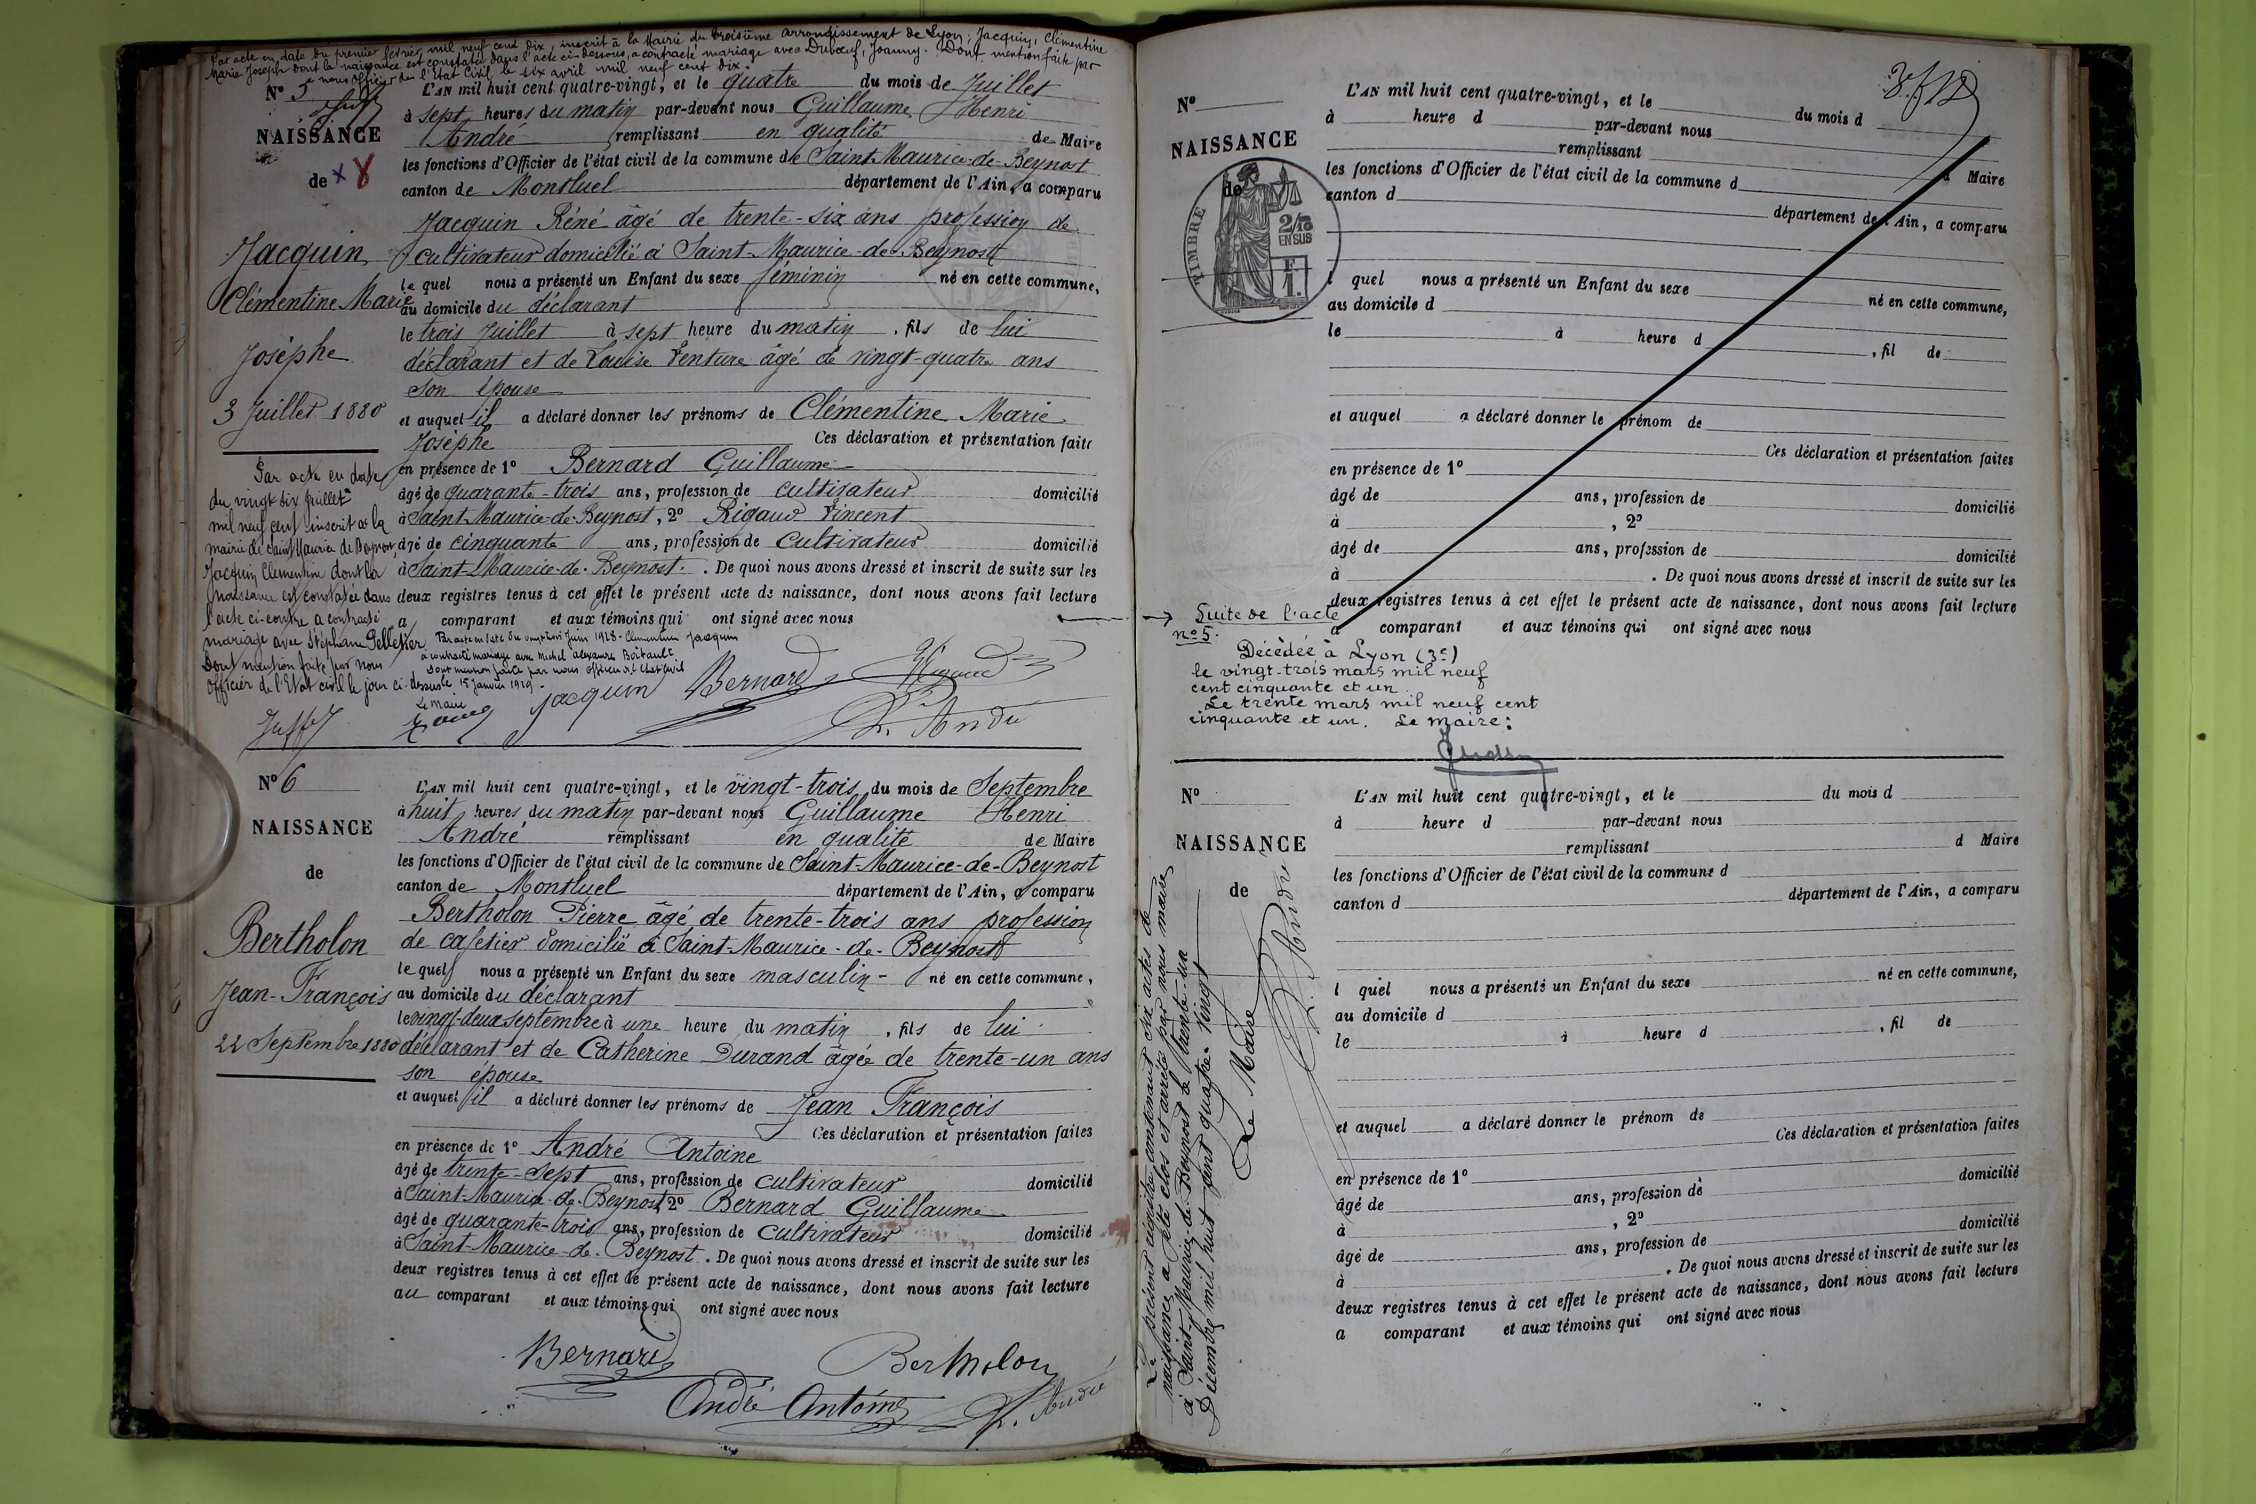 Par acte en date du premier février mil neuf cent dix, inscrit à la Mairie du troisième arrondissement de Lyon, Jacquin, Clémentine
Marie Joseph dont la naissance est constatée dans l'acte ci-dessous, a contracté mariage avec Dubœuf, Joanny. Dont mention faite par
nous Officier de l'Etat Civil, le six avril mil neuf cent dix.
N° 5
NAISSANCE
de
Jacquin
Clémentine Marie
Josèphe
3 Juillet 1880
L'AN mil huit cent quatre-vingt, et le quatre du mois de Juillet
à sept heures du matin par-devant nous Guillaume Henri
André remplissant en qualité de Maire
les fonctions d'Officier de l'état civil de la commune de Saint-Maurice-de-Beynost
canton de Montluel département de l'Ain, a comparu
Jacquin Réné âgé de trente-six ans profession de
cultivateur domicilié à Saint-Maurice-de-Beynost
le quel nous a présenté un Enfant du sexe féminin né en cette commune,
au domicile du déclarant
le trois Juillet à sept heure du matin, fils de lui
déclarant et de Louise Venture âgé de vingt-quatre ans
son épouse
et auquel il a déclaré donner les prénoms de Clémentine Marie
Josèphe Ces déclaration et présentation faite
en présence de 1° Bernard Guillaume
âgé de quarante-trois ans, profession de cultivateur domicilié
à Saint-Maurice-de-Beynost, 2° Rigaud Vincent
âgé de cinquante ans, profession de cultivateur domicilié
à Saint-Maurice-de-Beynost. De quoi nous avons dressé et inscrit de suite sur les
deux registres tenus à cet effet le présent acte de naissance, dont nous avons fait lecture
a comparant et aux témoins qui ont signé avec nous
Par acte en date
du vingt six Juillet
mil neuf cent inscrit à la
mairie de Saint Maurice de Beynost,
Jacquin Clémentine dont la
naissance est constatée dans
l'acte ci-contre a contracté
mariage avec Stéphane Pelletier
Dont mention faite par nous
Officier de l'Etat civil le jour ci-dessus
Par acte en date du vingt Juin 1928 - Clémentine Jacquin
a contracté mariage avec Michel Alexandre Boitault
Dont mention faite par nous officier de l'Etat Civil
le 15 Janvier 1929 -
Le Maire
Jacquin Bernard Rigaud
H. André
N° 6
NAISSANCE
de
Bertholon
Jean-François
22 Septembre 1880
L'AN mil huit cent quatre-vingt, et le vingt-trois du mois de Septembre
à huit heures du matin par-devant nous Guillaume Henri
André remplissant en qualité de Maire
les fonctions d'Officier de l'état civil de la commune de Saint-Maurice-de-Beynost
canton de Montluel département de l'Ain, a comparu
Bertholon Pierre âgé de trente-trois ans profession
de cafetier domicilié à Saint-Maurice-de-Beynost
le quel nous a présenté un Enfant du sexe masculin né en cette commune,
au domicile du déclarant
le vingt-deux septembre à une heure du matin, fils de lui
déclarant et de Catherine Durand âgée de trente-un ans
son épouse
et auquel il a déclaré donner les prénoms de Jean François
Ces déclaration et présentation faites
en présence de 1° André Antoine
âgé de trente-sept ans, profession de cultivateur domicilié
à Saint-Maurice-de-Beynost, 2° Bernard Guillaume
âgé de quarante-trois ans, profession de cultivateur domicilié
à Saint-Maurice-de-Beynost. De quoi nous avons dressé et inscrit de suite sur les
deux registres tenus à cet effet le présent acte de naissance, dont nous avons fait lecture
au comparant et aux témoins qui ont signé avec nous
Bernard Bertholon
André Antoine H. André
N°
NAISSANCE
de
TIMBRE
2/10
EN SUS
F
1
L'AN mil huit cent quatre-vingt, et le du mois d
à heure d par-devant nous
remplissant d Maire
les fonctions d'Officier de l'état civil de la commune d
canton d département de l'Ain, a comparu
l quel nous a présenté un Enfant du sexe né en cette commune,
au domicile d
le à heure d , fil de
et auquel a déclaré donner le prénom de
Ces déclaration et présentation faites
en présence de 1°
âgé de ans, profession de domicilié
à , 2°
âgé de ans, profession de domicilié
à . De quoi nous avons dressé et inscrit de suite sur les
deux registres tenus à cet effet le présent acte de naissance, dont nous avons fait lecture
a comparant et aux témoins qui ont signé avec nous
Suite de l'acte
n° 5.
Décédée à Lyon (3e)
le vingt-trois mars mil neuf
cent cinquante et un.
Le trente mars mil neuf cent
cinquante et un. Le Maire:
N°
NAISSANCE
de
L'AN mil huit cent quatre-vingt, et le du mois d
à heure d par-devant nous
remplissant d Maire
les fonctions d'Officier de l'état civil de la commune d
canton d département de l'Ain, a comparu
l quel nous a présenté un Enfant du sexe né en cette commune,
au domicile d
le à heure d , fil de
et auquel a déclaré donner le prénom de
Ces déclaration et présentation faites
en présence de 1°
âgé de ans, profession de domicilié
à , 2°
âgé de ans, profession de domicilié
à . De quoi nous avons dressé et inscrit de suite sur les
deux registres tenus à cet effet le présent acte de naissance, dont nous avons fait lecture
a comparant et aux témoins qui ont signé avec nous
Le présent registre contenant six actes de
naissance, a été clos et arrêté par nous maire
à Saint-Maurice-de-Beynost le trente-un
Décembre mil huit cent quatre-vingt
Le Maire
H. André